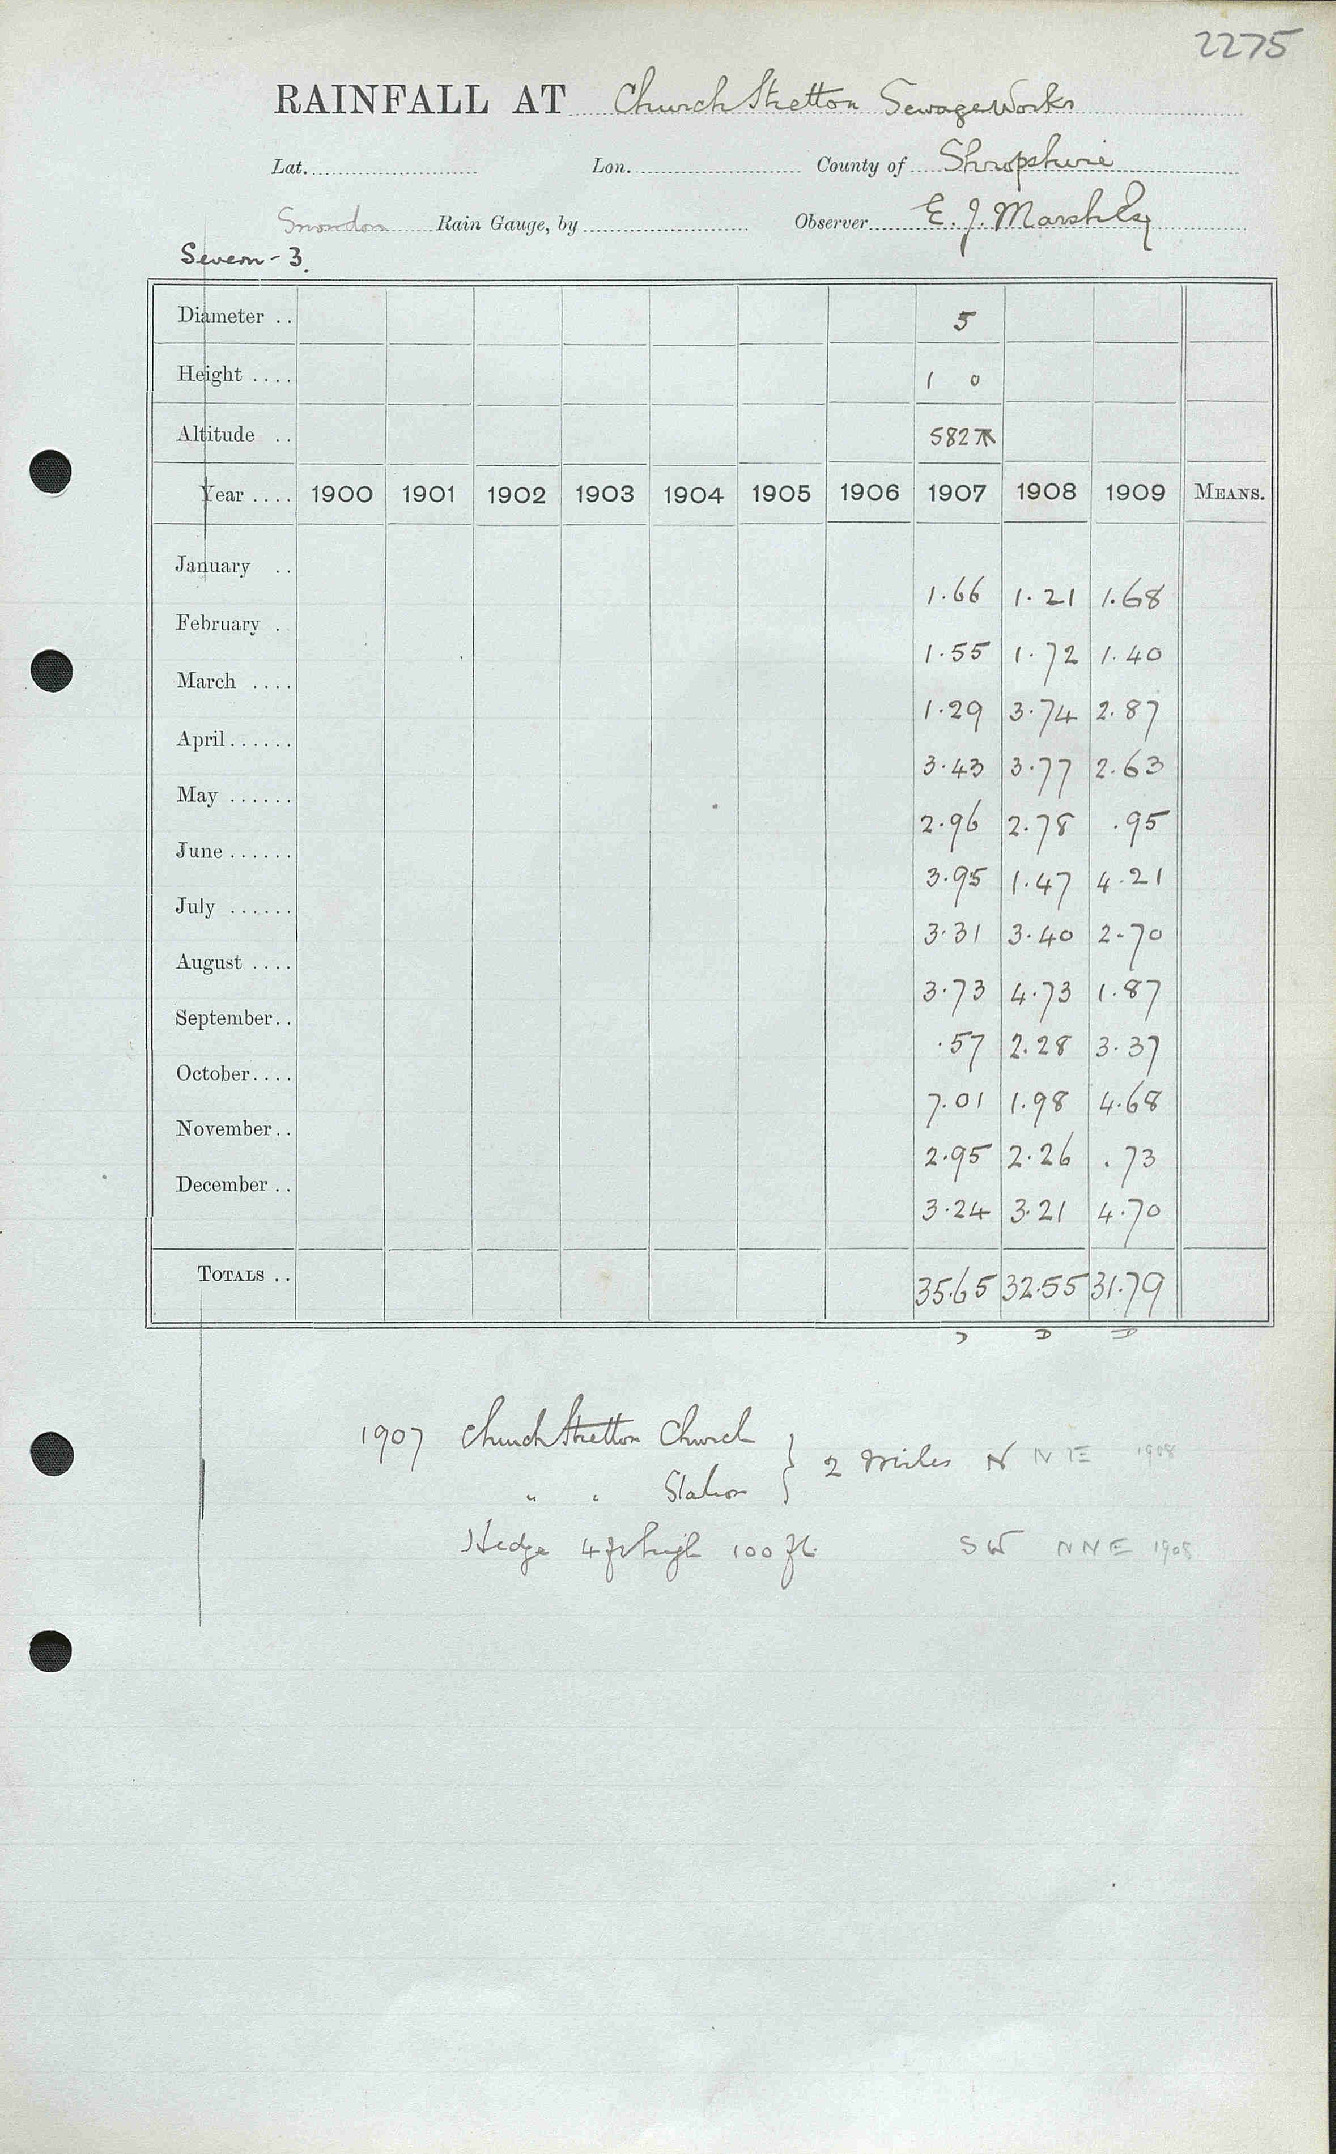 2275
RAINFALL AT Church Stretton Sewage Works
Lat. Lon. County of Shropshire
Snowdon Rain Gauge, by Observer E. J. Marsh Esq
Severn - 3.
Diameter .. 5
Height .... 1 0
Altitude .. 582
Year .... 1900 1901 1902 1903 1904 1905 1906 1907 1908 1909 MEANS.
January .. 1.66 1.21 1.68
February . 1.55 1.72 1.40
March .... 1.29 3.74 2.87
April ...... 3.43 3.77 2.63
May ...... 2.96 2.78 .95
June ...... 3.95 1.47 4.21
July ...... 3.31 3.40 2.70
August .... 3.73 4.73 1.87
September.. .57 2.28 3.37
October.... 7.01 1.98 4.68
November.. 2.95 2.26 .73
December .. 3.24 3.21 4.70
TOTALS .. 35.65 32.55 31.79
1907 Church Stretton Church } 2 miles N NNE 1908
" " Station
Hedge 4 ft high 100 ft. SW NNE 1908